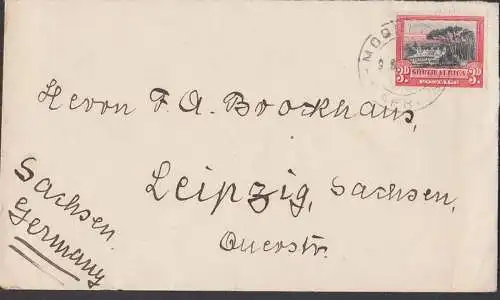 MOO
3D SOUTH AFRICA 3D
POSTAGE
Herrn F. A. Brockhaus,
Leipzig, Sachsen,
Querstr.
Sachsen.
Germany